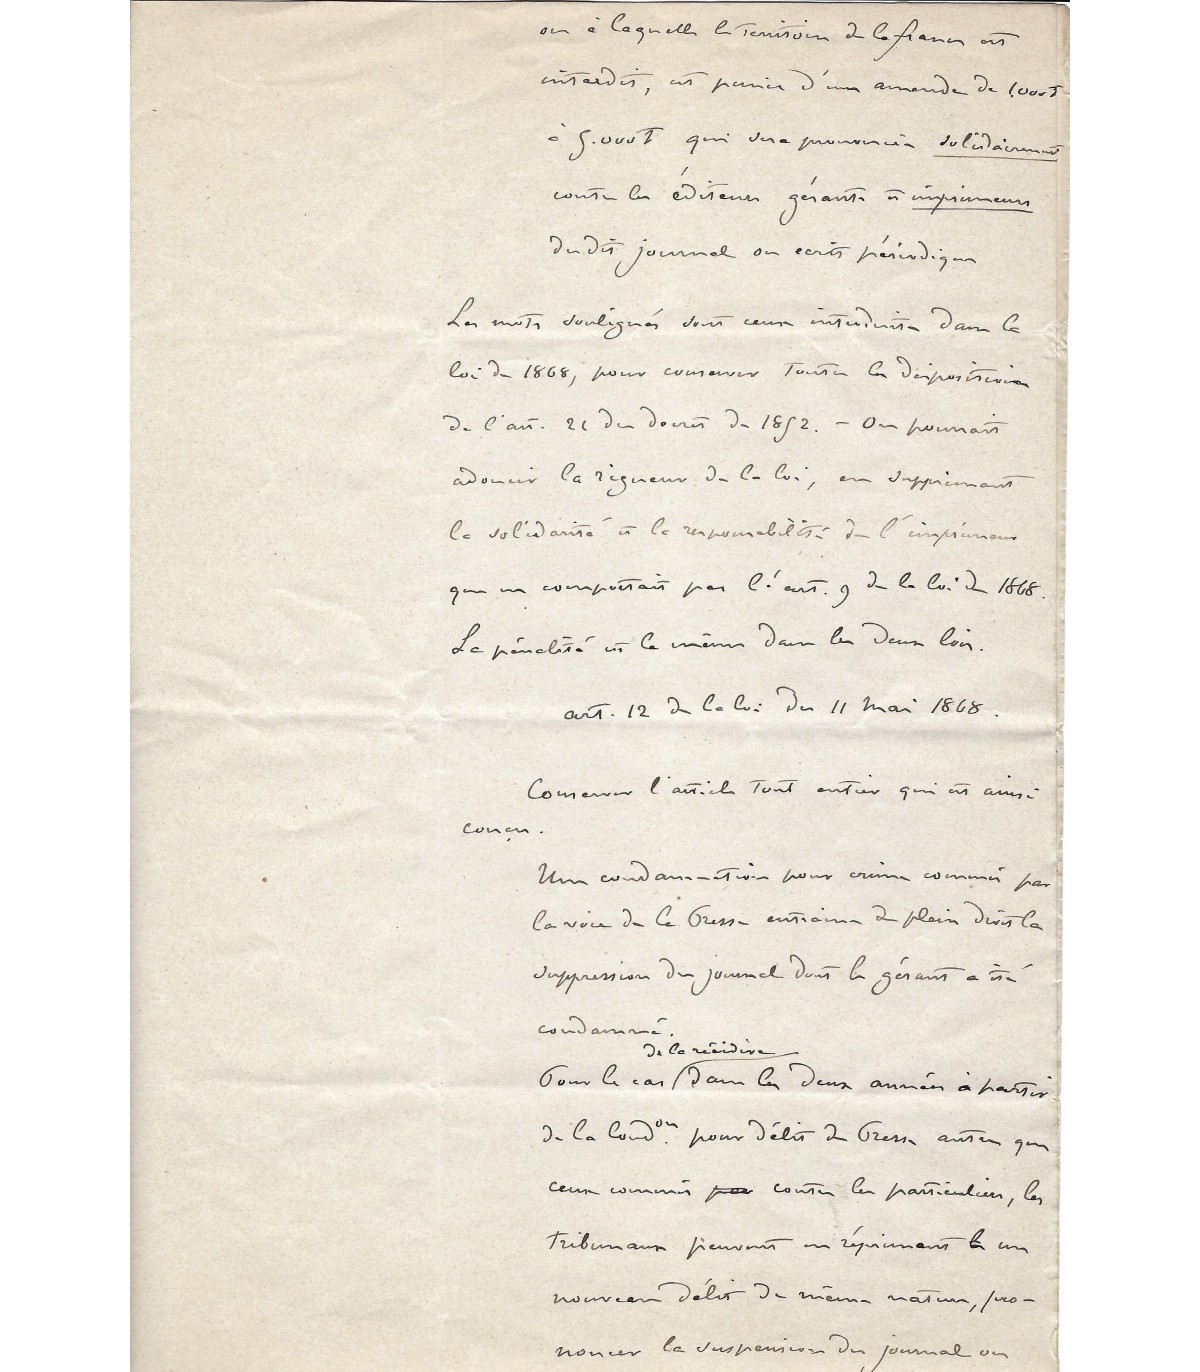 ou à laquelle le territoire de la france est
interdit, est punie d'une amende de 1.000f
à 5.000f qui sera prononcée solidairement
contre les éditeurs gérants et imprimeurs
du dit journal ou écrit périodique
Les mots soulignés sont ceux introduits dans la
loi de 1868, pour conserver toutes les dispositions
de l'art. 21 du decret de 1852. – On pourrait
adoucir la rigueur de la loi, en supprimant
la solidarité et la responsabilité de l'imprimeur
que ne comportait pas l'art. 9 de la loi de 1868.
La pénalité est la même dans les deux lois.
art. 12 de la loi du 11 mai 1868.
Conserver l'article tout entier qui est ainsi
conçu.
Une condamnation pour crime commis par
la voie de la Presse entraine de plein droit la
suppression du journal dont le gérant a été
condamné.
de la récidive
Pour le cas dans les deux années à partir
de la Cond.on pour délit de Presse autre que
ceux commis par contre les particuliers, les
tribunaux peuvent en réprimant un
nouveau délit de même nature, pro-
noncer la suspension du journal ou